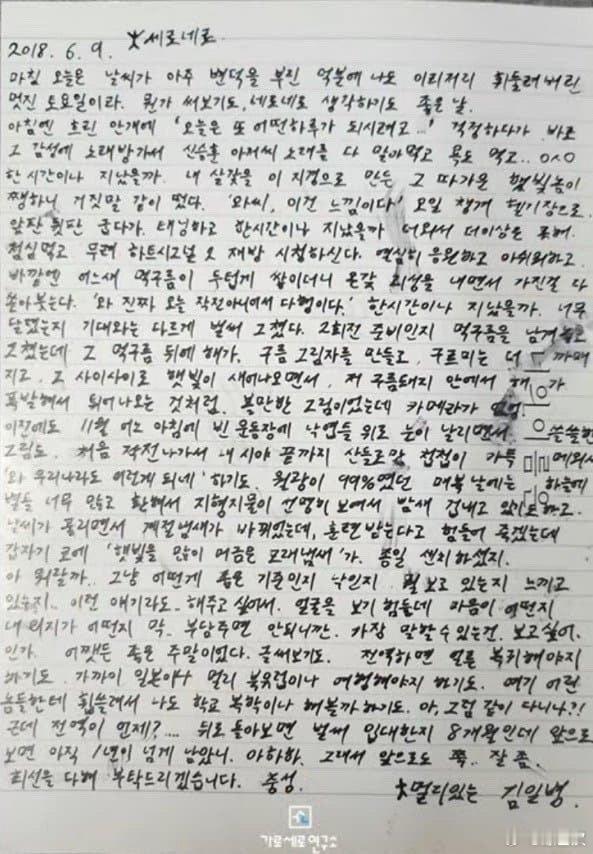 2018. 6. 9. ★세로네로
마침 오늘은 날씨가 아주 변덕을 부린 덕분에 나도 이리저리 휘둘려버린
멋진 토요일이라. 뭔가 써보기도, 세로네로 생각하기도 좋은 날.
아침엔 흐린 안개에 '오늘은 또 어떤하루가 되시려고...' 걱정하다가 바로
그 감성에 노래방가서 신승훈 아저씨 노래를 다 말아먹고 욕도 먹고.. ㅇㅅㅇ
한시간이나 지났을까. 내 살갗을 이 지경으로 만든 그 따가운 햇빛놈이
쨍하니 거짓말 같이 떴다. '와씨, 이건 느낌이다' 오일 챙겨 헬기장으로.
앞판 뒷판 굽다가. 태닝하고 한시간이나 지났을까 더워서 더이상은 못해.
점심먹고 무려 하트시그널 2 재방 시청하신다. 열심히 응원하고 아쉬워하고.
바깥엔 어느새 먹구름이 두텁게 쌓이더니 온갖 괴성을 내면서 가진걸 다
쏟아붓는다. '와 진짜 오늘 작전아니어서 다행이다.' 한시간이나 지났을까. 너무
달랬는지 기대와는 다르게 벌써 그쳤다. 2회전 준비인지 먹구름을 남겨놓고
그쳤는데 그 먹구름 뒤에 해가. 구름 그림자를 만들고, 구르미는 더 까매
지고. 그 사이사이로 햇빛이 새어나오면서, 저 구름돼지 안에서 해가
폭발해서 튀어나오는 것처럼. 볼만한 그림이었는데 카메라가
이전에도 11월 어느 아침에 빈 운동장에 낙엽들 위로 눈이 날리면서 쓸쓸한
그림도. 처음 작전나가서 내 시야 끝까지 산들로만 첩첩이 가득 메워서
'와 우리나라도 이렇게 되네' 하기도. 월광이 99%였던 매복날에는 하늘에
별들 너무 많고 환해서 지형지물이 선명히 보여서 밤새 겁내고 있기도하고.
날씨가 풀리면서 계절냄새가 바뀌었는데, 훈련받는다고 힘들어 죽겠는데
갑자기 코에 '햇빛을 많이 머금은 모래냄새'가. 종일 센치하셨지.
아 뭐랄까. 그냥 어떻게 좁은 기준인지 낙인지 뭘 보고 있는지 느끼고
있는지.. 이런 얘기라도.. 해주고 싶어서. 얼굴을 보기 힘든데 마음이 어떤지
내 의지가 어떤지 막.. 부담주면 안되니깐. 가장 말할수 있는건. 보고싶어.
인가. 어쨌든 좋은 주말이었다. 글써보기도. 전역하면 얼른 복귀해야지
하기도. 가까이 일본이나 멀리 북유럽이나 여행해야지 하기도. 여기 어린
놈들한테 휩쓸려서 나도 학교 복학이나 해볼까하기도. 아, 그럼 같이 다니나?!
근데 전역이 언제?.... 뒤로 돌아보면 벌써 입대한지 8개월인데 앞으로
보면 아직 1년이 넘게 남았니. 아하하. 그래서 앞으로도 쭉.. 잘 좀.
최선을 다해 부탁드리겠습니다. 충성.
★멀리있는 김일병.
가로세로연구소